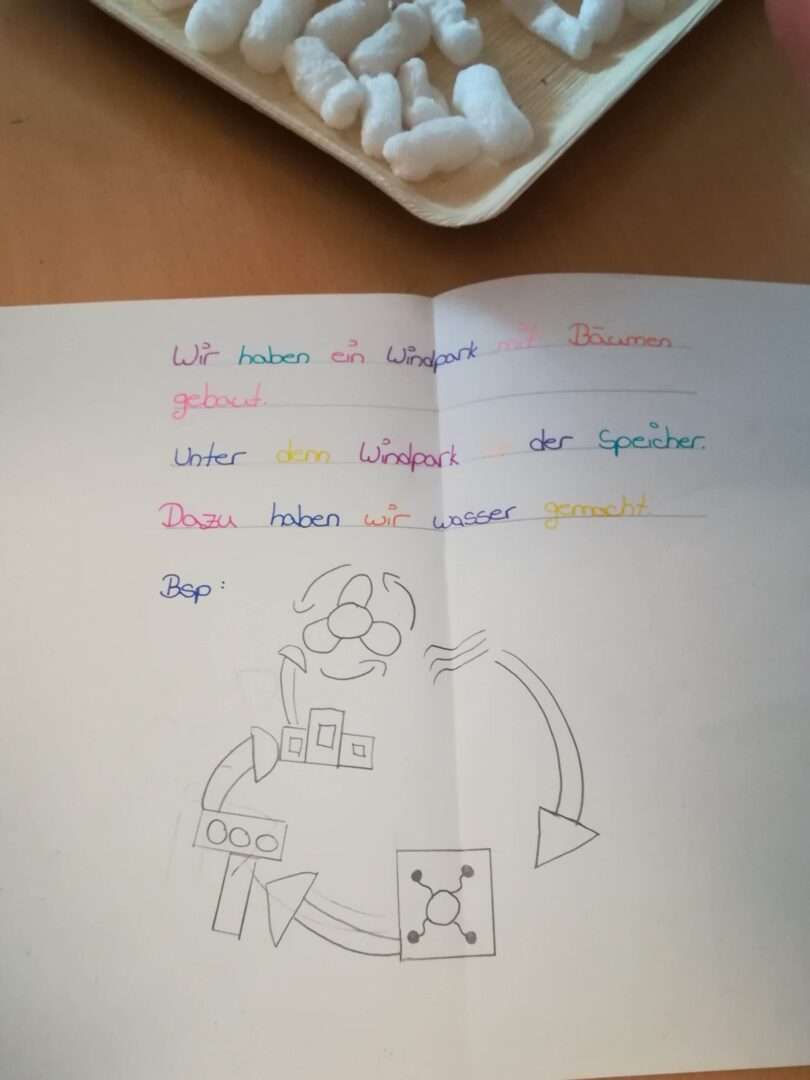 Wir haben ein Windpark mit Bäumen
gebaut.
Unter denn Windpark der Speicher.
Dazu haben wir wasser gemacht
Bsp: